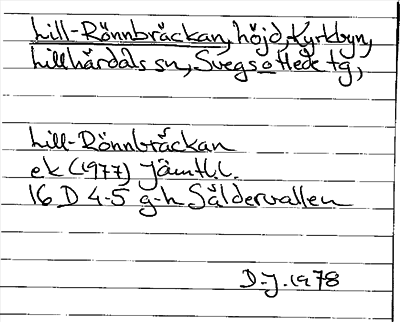 Lill-Rönnbräckan, höjd, Kyrkbyn,
Lillhärdals sn, Svegs o Hede tg,
Lill-Rönnbräckan
ek (1977) Jämtl.l.
16 D 4-5 g-h Säldervallen
D.J. 1978